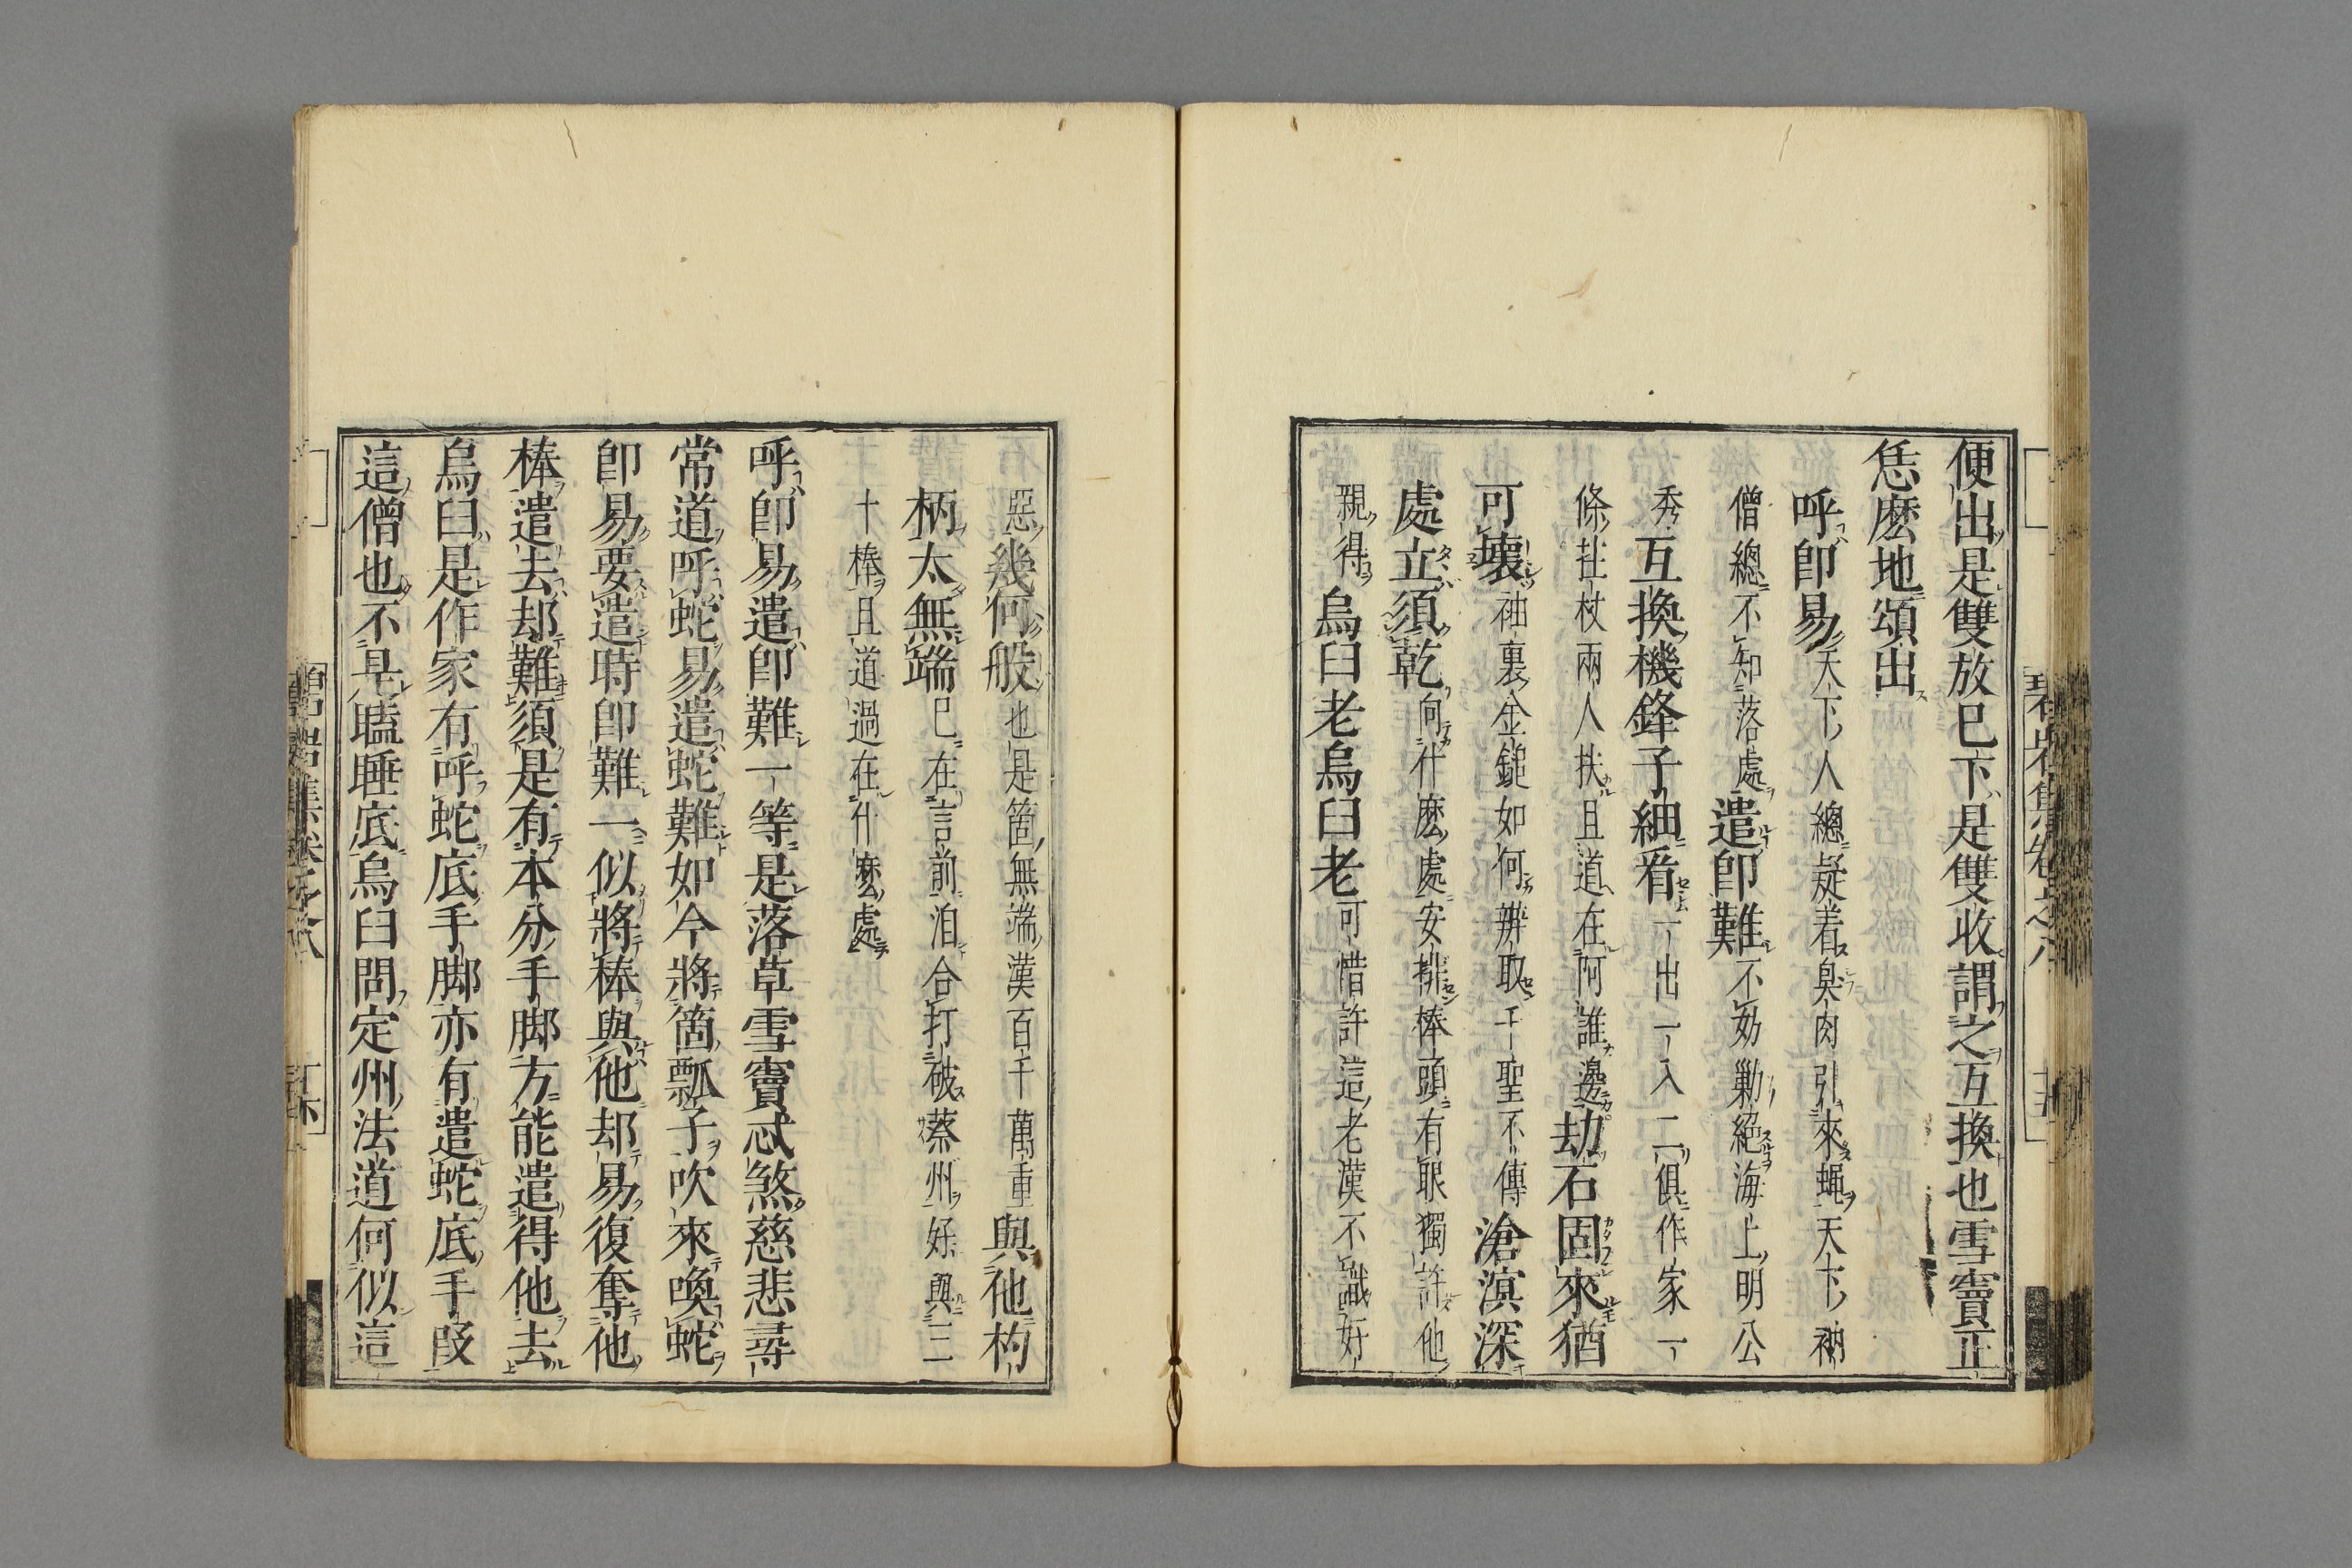 便出是雙放巳下是雙收謂之互換也雪竇正
恁麽地頌出
呼卽易天下人總疑着臭肉引來蝿天下衲
僧總不知落處遣卽難不妨勦絕海上明公
秀互換機鋒子細看一出一入二俱作家一
條拄杖兩人扶且道在阿誰邊劫石固來猶
可壞袖裏金鎚如何辨取千聖不傳滄溟深
處立須乾向什麽處安排棒頭有眼獨許他
親得烏臼老烏臼老可惜許這老漢不識好
惡幾何般也是箇無端漢百千萬重與他杓
柄太無端巳在言前洎合打破蔡州好與三
十棒且道過在什麽處
呼卽易遣卽難一等是落草雪竇忒煞慈悲尋
常道呼蛇易遣蛇難如今將箇瓢子吹來喚蛇
卽易要遣時卽難一似將棒與他却易復奪他
棒遣去却難須是有本分手脚方能遣得他去
烏臼是作家有呼蛇底手脚亦有遣蛇底手段
這僧也不是瞌睡底烏臼問定州法道何似這